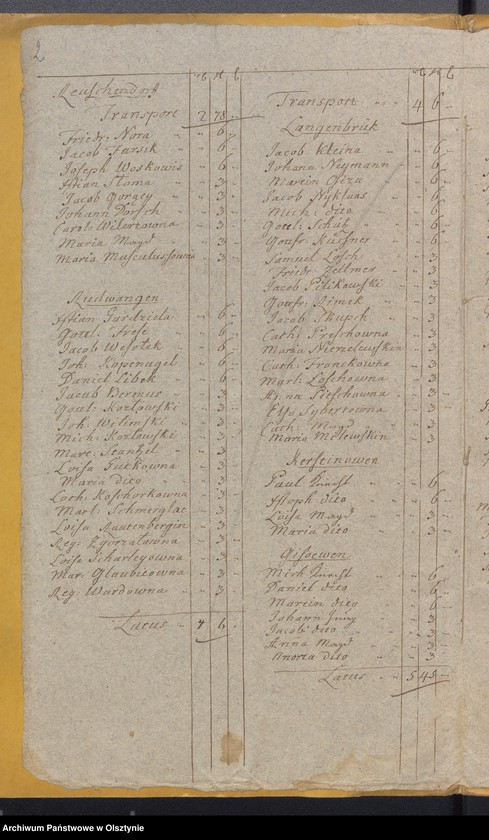 2
Reuschendorf
Transport 2 78
Friedr: Nora " 6
Jacob Jarsik " 6
Joseph Woskowis " 6
Jacob Goraÿ " 3
Johann Dorsch " 3
Carol: Wikertowna " 3
Maria Mayd " 3
Maria " 3
Riedwangen
" 6
Gottl: Frese " 6
Jacob Wesolek " 6
Joh: Kopenagel " 6
Daniel Libek " 6
Jacob Bermus " 3
Gottl: Kozlowski " 3
Joh: Welimski " 3
Mich: Kozlowski " 3
" 3
Loisa Gutkowna " 3
Maria dito " 3
Cath: Koschorkowna " 3
Mart: Schmerglac " 3
Loisa Rautenbergin " 3
Reg: Zgorzalowna " 3
Loisa Scharleyowna " 3
Mar: Glaubicowna " 3
Reg: Wardowna " 3
Latus " 4 6
Transport 4 6
Langenbrük
Jacob Kleina " 6
Johann Neymann " 6
Martin Giza " 6
Jacob Nyklaus " 6
Mich: dito " 6
Gottl: Schub " 6
Gottfr: Küssner " 6
Samuel Losch " 3
Friedr Zellmer " 3
Jacob Pilikowski " 3
Gottfr: Dimek " 3
Jacob Skupch " 3
Cath: " 3
Maria Nierzelewskin " 3
Cath: Franckowna " 3
Mart: Loschowna " 3
" 3
Else Sybertowna " 3
Cath: Mayd " 3
Maria Milewskin " 3
Kerstinowen
Paul " 6
dito " 6
Loisa Mayd " 3
Maria dito " 3
Gisoewen
Mich " 6
Daniel dito " 6
Martin dito " 6
Johann Jung " 3
Jacob dito " 3
Anna Mayd " 3
dito " 3
Latus 5 45
Archiwum Państwowe w Olsztynie